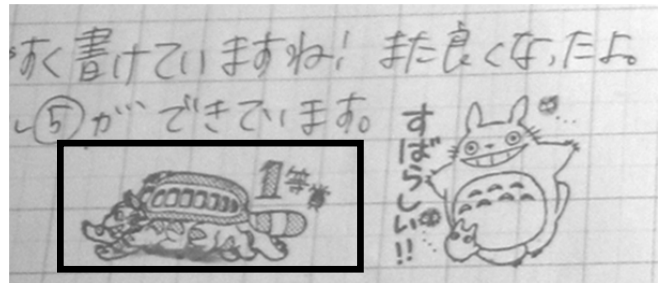 すく書けていますね! また良くなったよ。
し⑤ができています。
1等賞
すばらしい!!